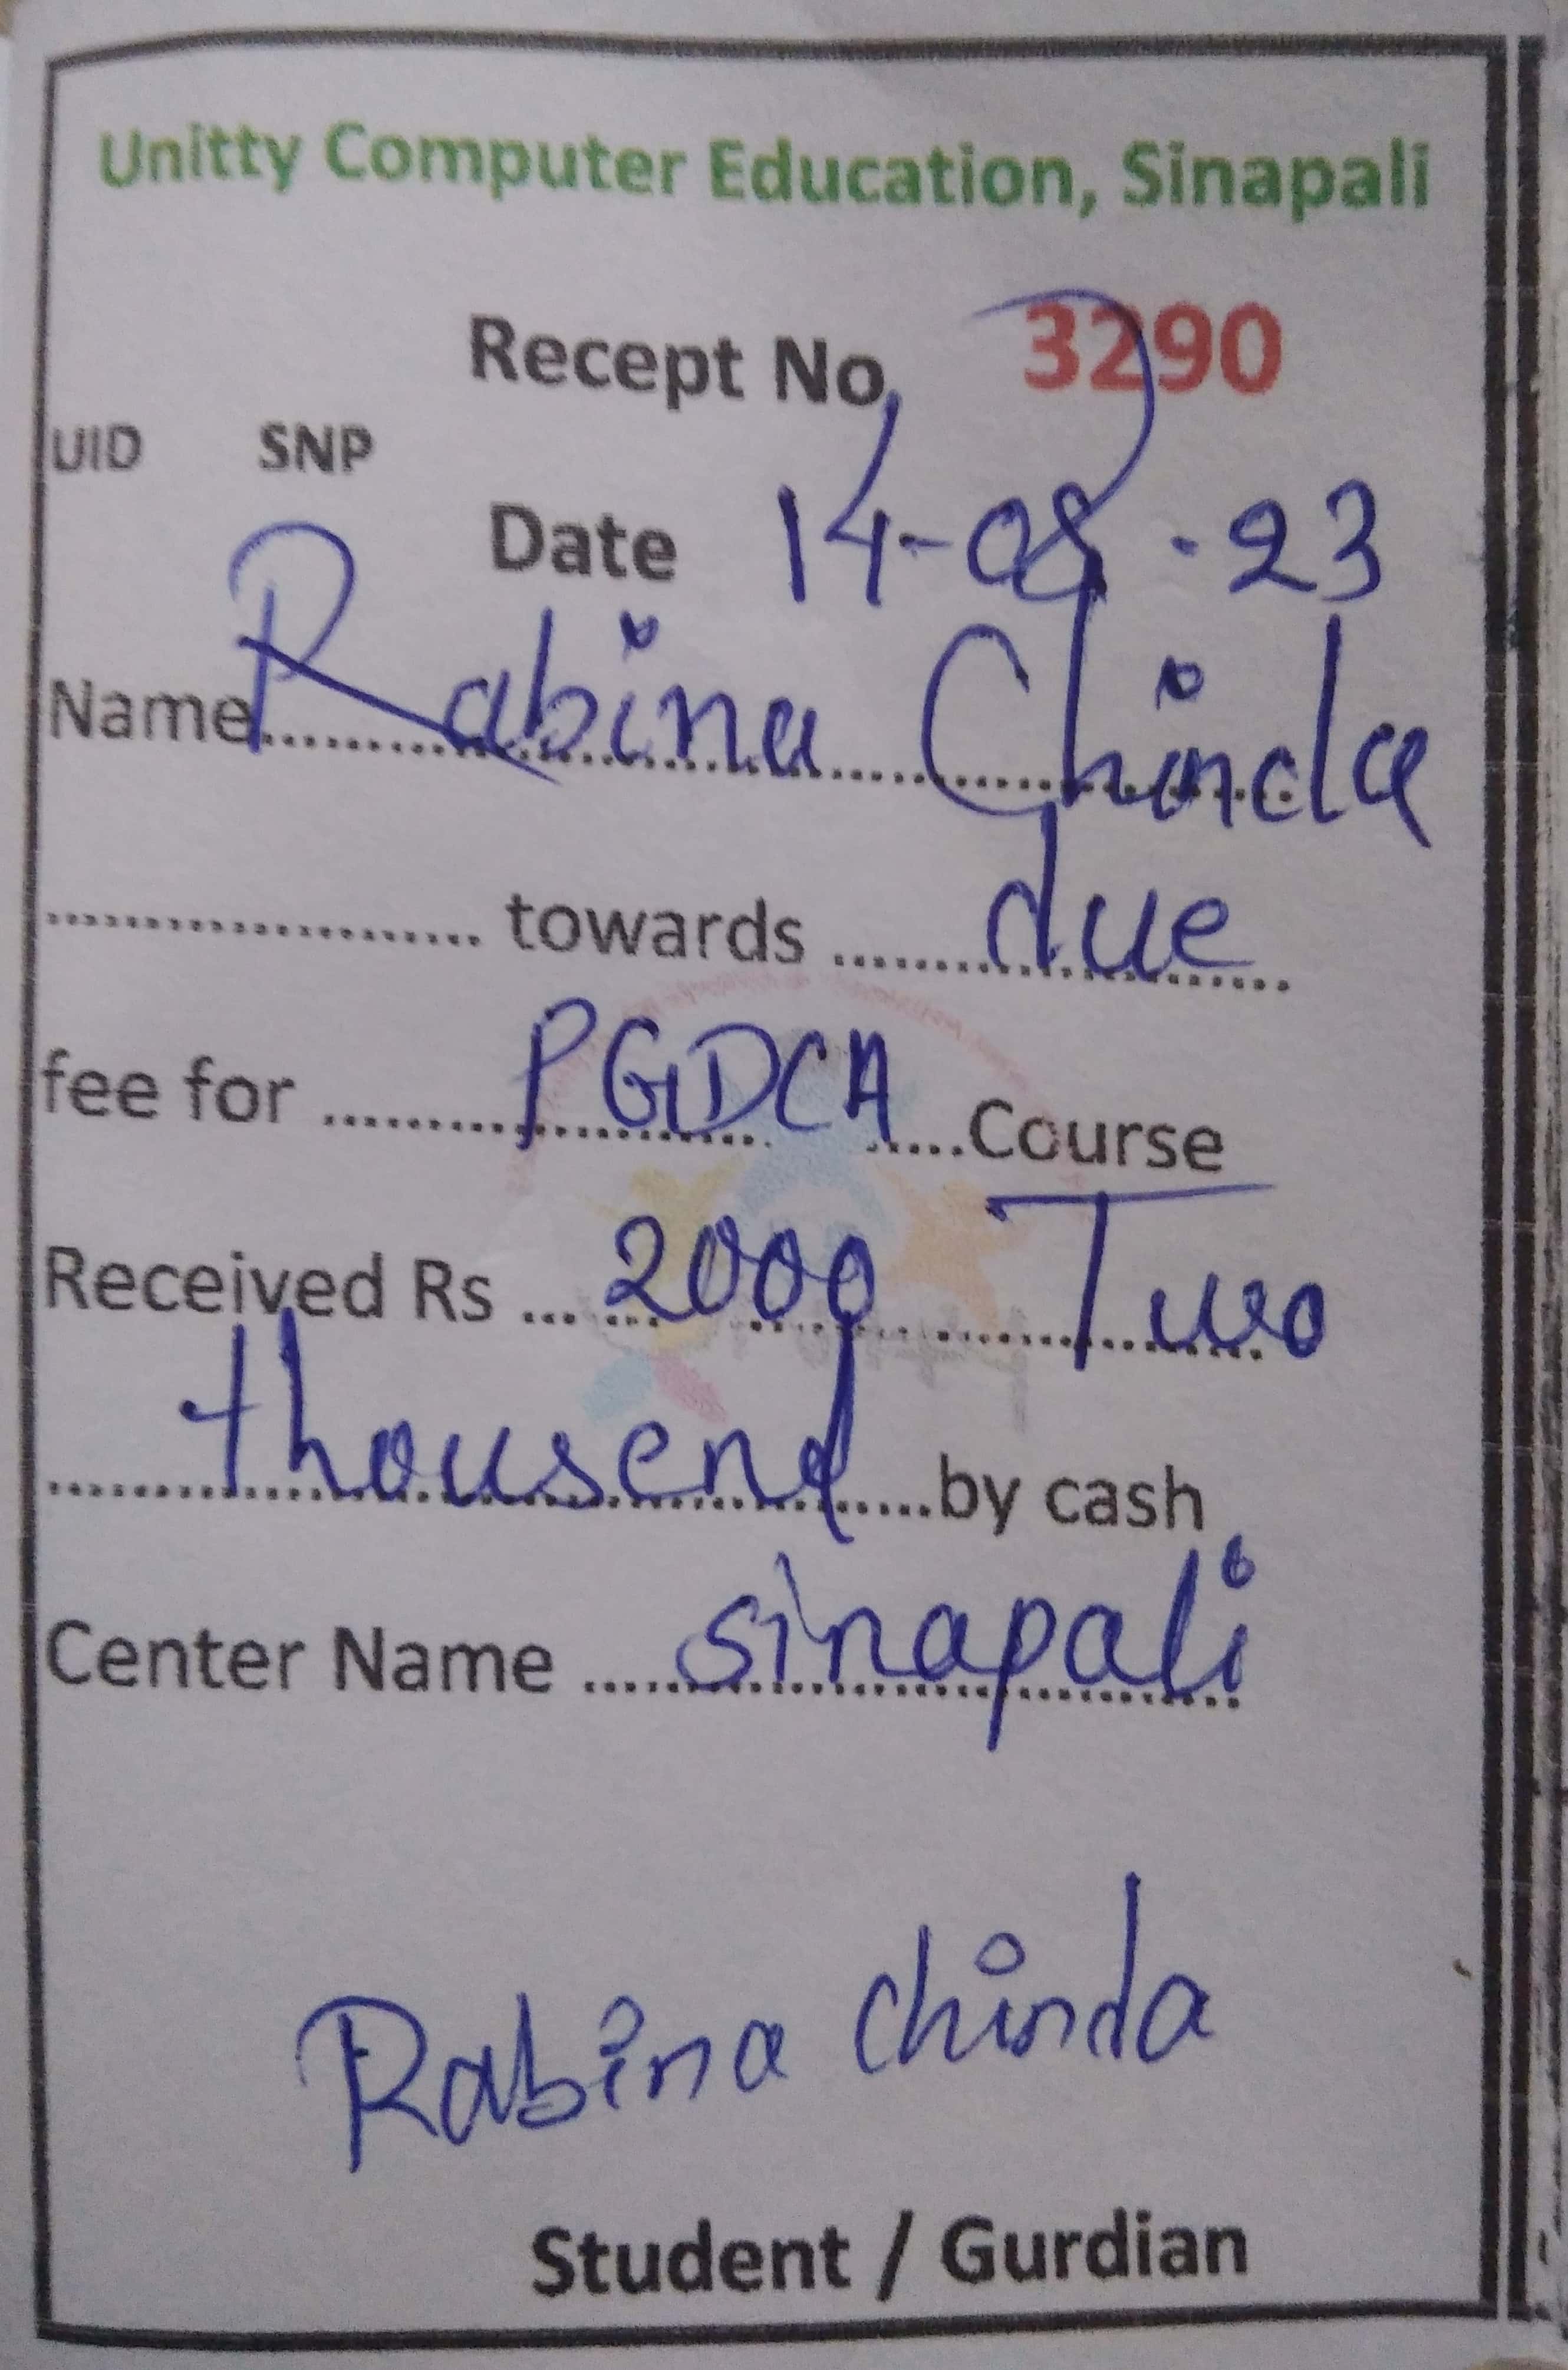 Unitty Computer Education, Sinapali
Recept No. 3290
UID SNP
Date 14-08-23
Name Rabina Chinda
.................... towards ..... due
fee for ..... PGDCA .....Course
Received Rs ... 2000 Two
thousend .....by cash
Center Name ..... sinapali
Rabina chinda
Student / Gurdian